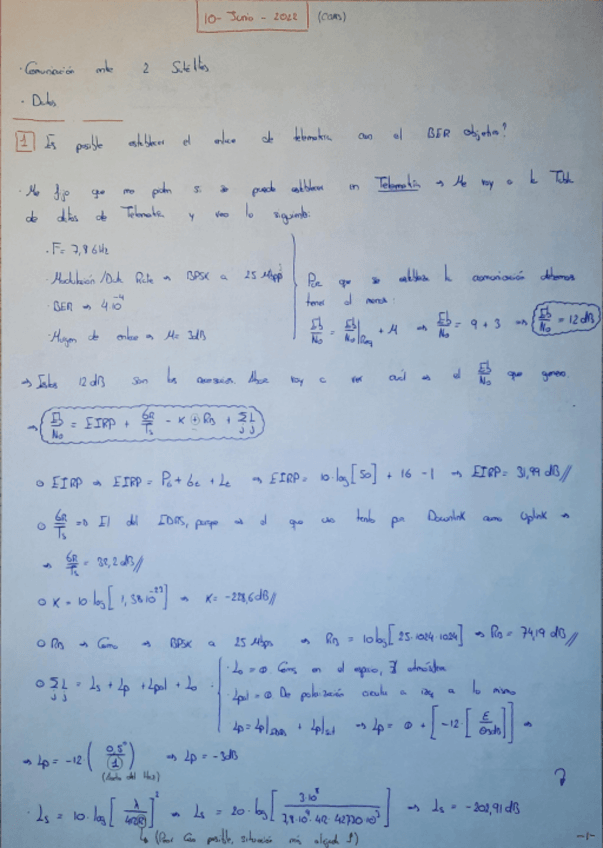 10 - Junio - 2022 (COMS)
· Comunicación entre 2 Satélites
· Datos
1 Es posible establecer el enlace de telemetría con el BER objetivo?
· Me fijo que me piden si se puede establecer en Telemetría → Me voy a la Tabla
de datos de Telemetría y veo lo siguiente:
· F = 7,8 GHz
· Modulación/Data Rate → BPSK a 25 Mbps
· BER → 4·10⁻⁴
· Margen de enlace → M = 3dB
Para que se establezca la comunicación debemos
tener al menos:
Eb/No = Eb/No|Req + M ⇒ Eb/No = 9 + 3 ⇒ Eb/No = 12 dB
→ Estos 12 dB son los necesarios. Ahora voy a ver cuál es el Eb/No que genero.
→ Eb/No = EIRP + GR/Ts - K - RB + Σ Lj
○ EIRP → EIRP = PG + GE + LE → EIRP = 10·log[50] + 16 - 1 → EIRP = 31,99 dB //
○ GR/Ts ⇒ El del EDRS, porque es el que uso tanto por Downlink como Uplink →
→ GR/Ts = 32,2 dB //
○ K = 10 log[1,38·10⁻²³] → K = -228,6 dB //
○ RB → Como → BPSK a 25 Mbps → RB = 10 log[25·1024·1024] → RB = 74,19 dB //
○ Σ Lj = Ls + Lp + Lpol + Lo
· Lo = 0. Como en el espacio, ∄ atmósfera
· Lpol = 0. De polarización circular a izq a lo mismo
· Lp = Lp| + Lp|sat → Lp = 0 + [-12·[E/θ3dB]] →
→ Lp = -12·(0,5/1)² → Lp = -3dB
(dato del)
?
· Ls = 10·log[λ/4πR]² → Ls = 20·log[3·10⁸/7,8·10⁹·4π·42730·10³] → Ls = -202,91 dB
↳ (Peor Caso posible, situación más alejada)
-1-